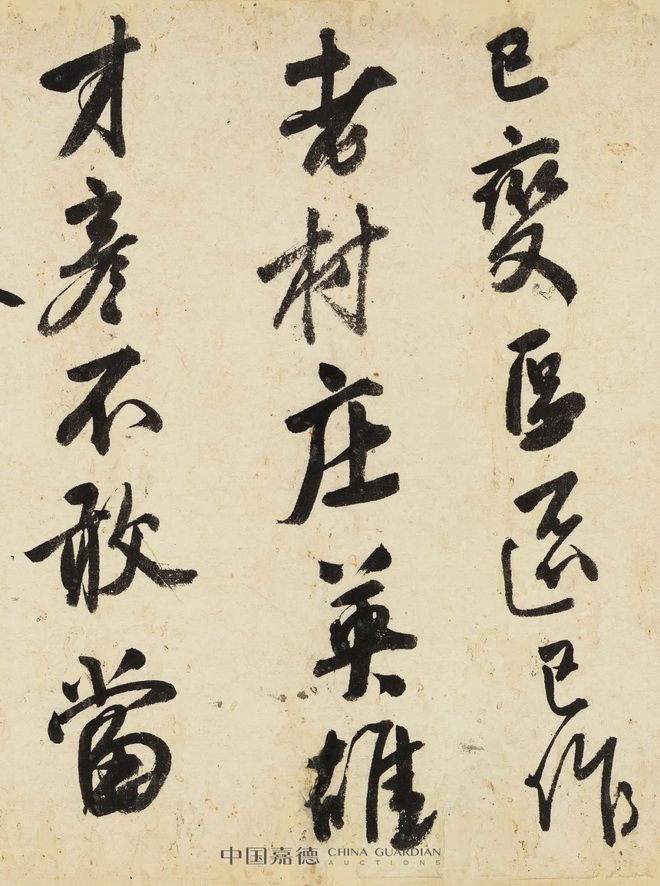 已變區區已作
老村庄英雄
才彥不敢當
中国嘉德 CHINA GUARDIAN
AUCTIONS